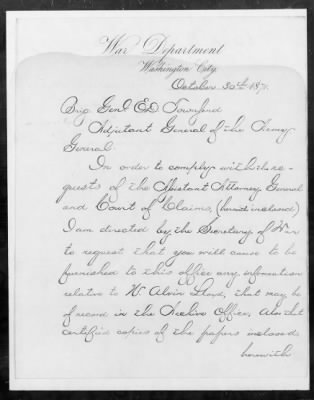 War Department
Washington City.
October 30th 187
Brig Genl E D Townsend
Adjutant General of the Army
General.
In order to comply with the re-
quests of the Assistant Attorney General
and Court of Claims, (herewith inclosed)
I am directed by the Secretary of War
to request that you will cause to be
furnished to this office any information
relative to W. Alvin Lloyd, that may be
of record in the Archive Office, Also that
certified copies of the papers inclosed
herewith